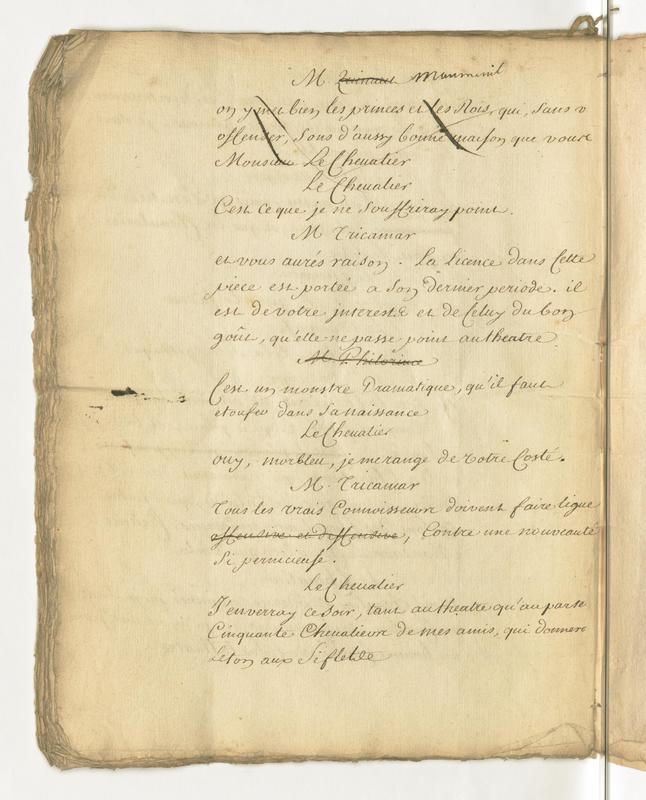 M. Monmenil
on y met bien les princes et les Rois, qui, sans v
offenser, sons d'aussy bonne maison que vous
Monsieu Le Chevalier
Le Chevalier
C'est ce que je ne souffriray point.
M. Tricamar
et vous aurés raison. La Licence dans Cette
piece est portée a son dernier periode. il
est de votre interest et de Celuy du bon
goût, qu'elle ne passe point au theatre.
M. Philorime
C'est un monstre Dramatique, qu'il faut
etoufer dans sa naissance
Le Chevalier
ouy, morbleu, je me range de vôtre Costé.
M. Tricamar
Tous les vrais Connoisseurs doivent faire ligue
offensive et deffensive, Contre une nouveauté
si pernicieuse.
Le Chevalier
J'enverray ce soir, tant au theatre qu'au parte
Cinquante Chevaliers de mes amis, qui donner
le ton aux Siflets